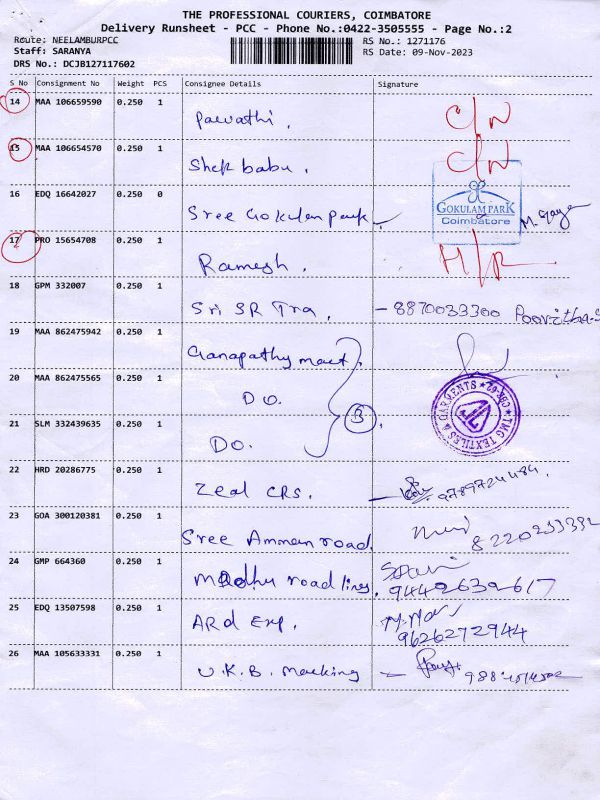 THE PROFESSIONAL COURIERS, COIMBATORE
Delivery Runsheet - PCC - Phone No.:0422-3505555 - Page No.:2
Route: NEELAMBURPCC RS No.: 1271176
Staff: SARANYA RS Date: 09-Nov-2023
DRS No.: DCJB127117602
S No Consignment No Weight PCS Consignee Details Signature
14 MAA 106659590 0.250 1 Parvathi. C/N
15 MAA 106654570 0.250 1 Shek babu. C/N
16 EDQ 16642027 0.250 0 Sree Gokulam park
GOKULAM PARK
Coimbatore
17 PRO 15654708 0.250 1 Ramesh. H/R
18 GPM 332007 0.250 1 Sri SR Tra, - 8870033300
19 MAA 862475942 0.250 1 Ganapathy mact.
20 MAA 862475565 0.250 1 DO.
21 SLM 332439635 0.250 1 DO. 3
TMG TEXTILES & GARMENTS CBE-62
22 HRD 20286775 0.250 1 Zeal CRS. 9789724484
23 GOA 300120381 0.250 1 Sree Amman road. 8220233332
24 GMP 664360 0.250 1 Madhu road lines. 9442632617
25 EDQ 13507598 0.250 1 ARd Exp. 9626272944
26 MAA 105633331 0.250 1 U.K.B. Macking